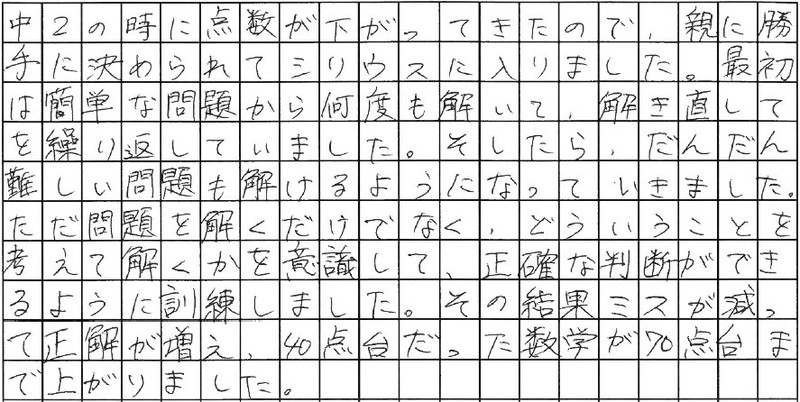 中2の時に点数が下がってきたので、親に勝
手に決められてシリウスに入りました。最初
は簡単な問題から何度も解いて、解き直して
を繰り返していました。そしたら、だんだん
難しい問題も解けるようになっていきました。
ただ問題を解くだけでなく、どういうことを
考えて解くかを意識して、正確な判断ができ
るように訓練しました。その結果ミスが減っ
て正解が増え、40点台だった数学が70点台ま
で上がりました。